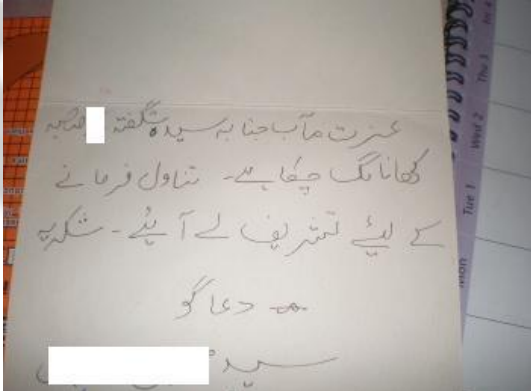 عزت مآب جنابہ سیدہ شگفتہ صاحبہ
کھانا لگ چکا ہے۔ تناول فرمانے
کے لئے تشریف لے آئیے۔ شکریہ
دعا گو
سید
Mon
Tue 1
Wed 2
Thu 3
Fri 4